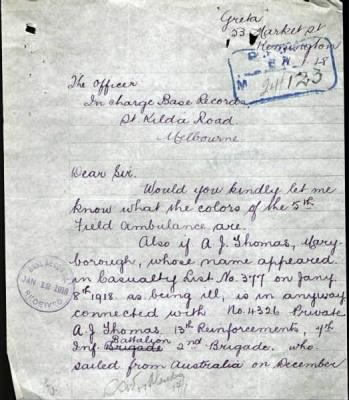 "Greta"
53 Market St
Kensington
18
24/123
The Officer
In charge Base Records
St Kilda Road
Melbourne
Dear Sir.
Would you kindly let me
know what the colors of the 5th
Field Ambulance are.
Also if A J Thomas, Mary-
borough, whose name appeared
in Casualty List No. 377 on Jany
8th 1918 as being ill, is in anyway
connected with No. 4326 Private
A J Thomas, 13th Reinforcements, 7th
Battalion
Inf. Brigade 2nd Brigade. who
sailed from Australia on December
JAN 19 1918